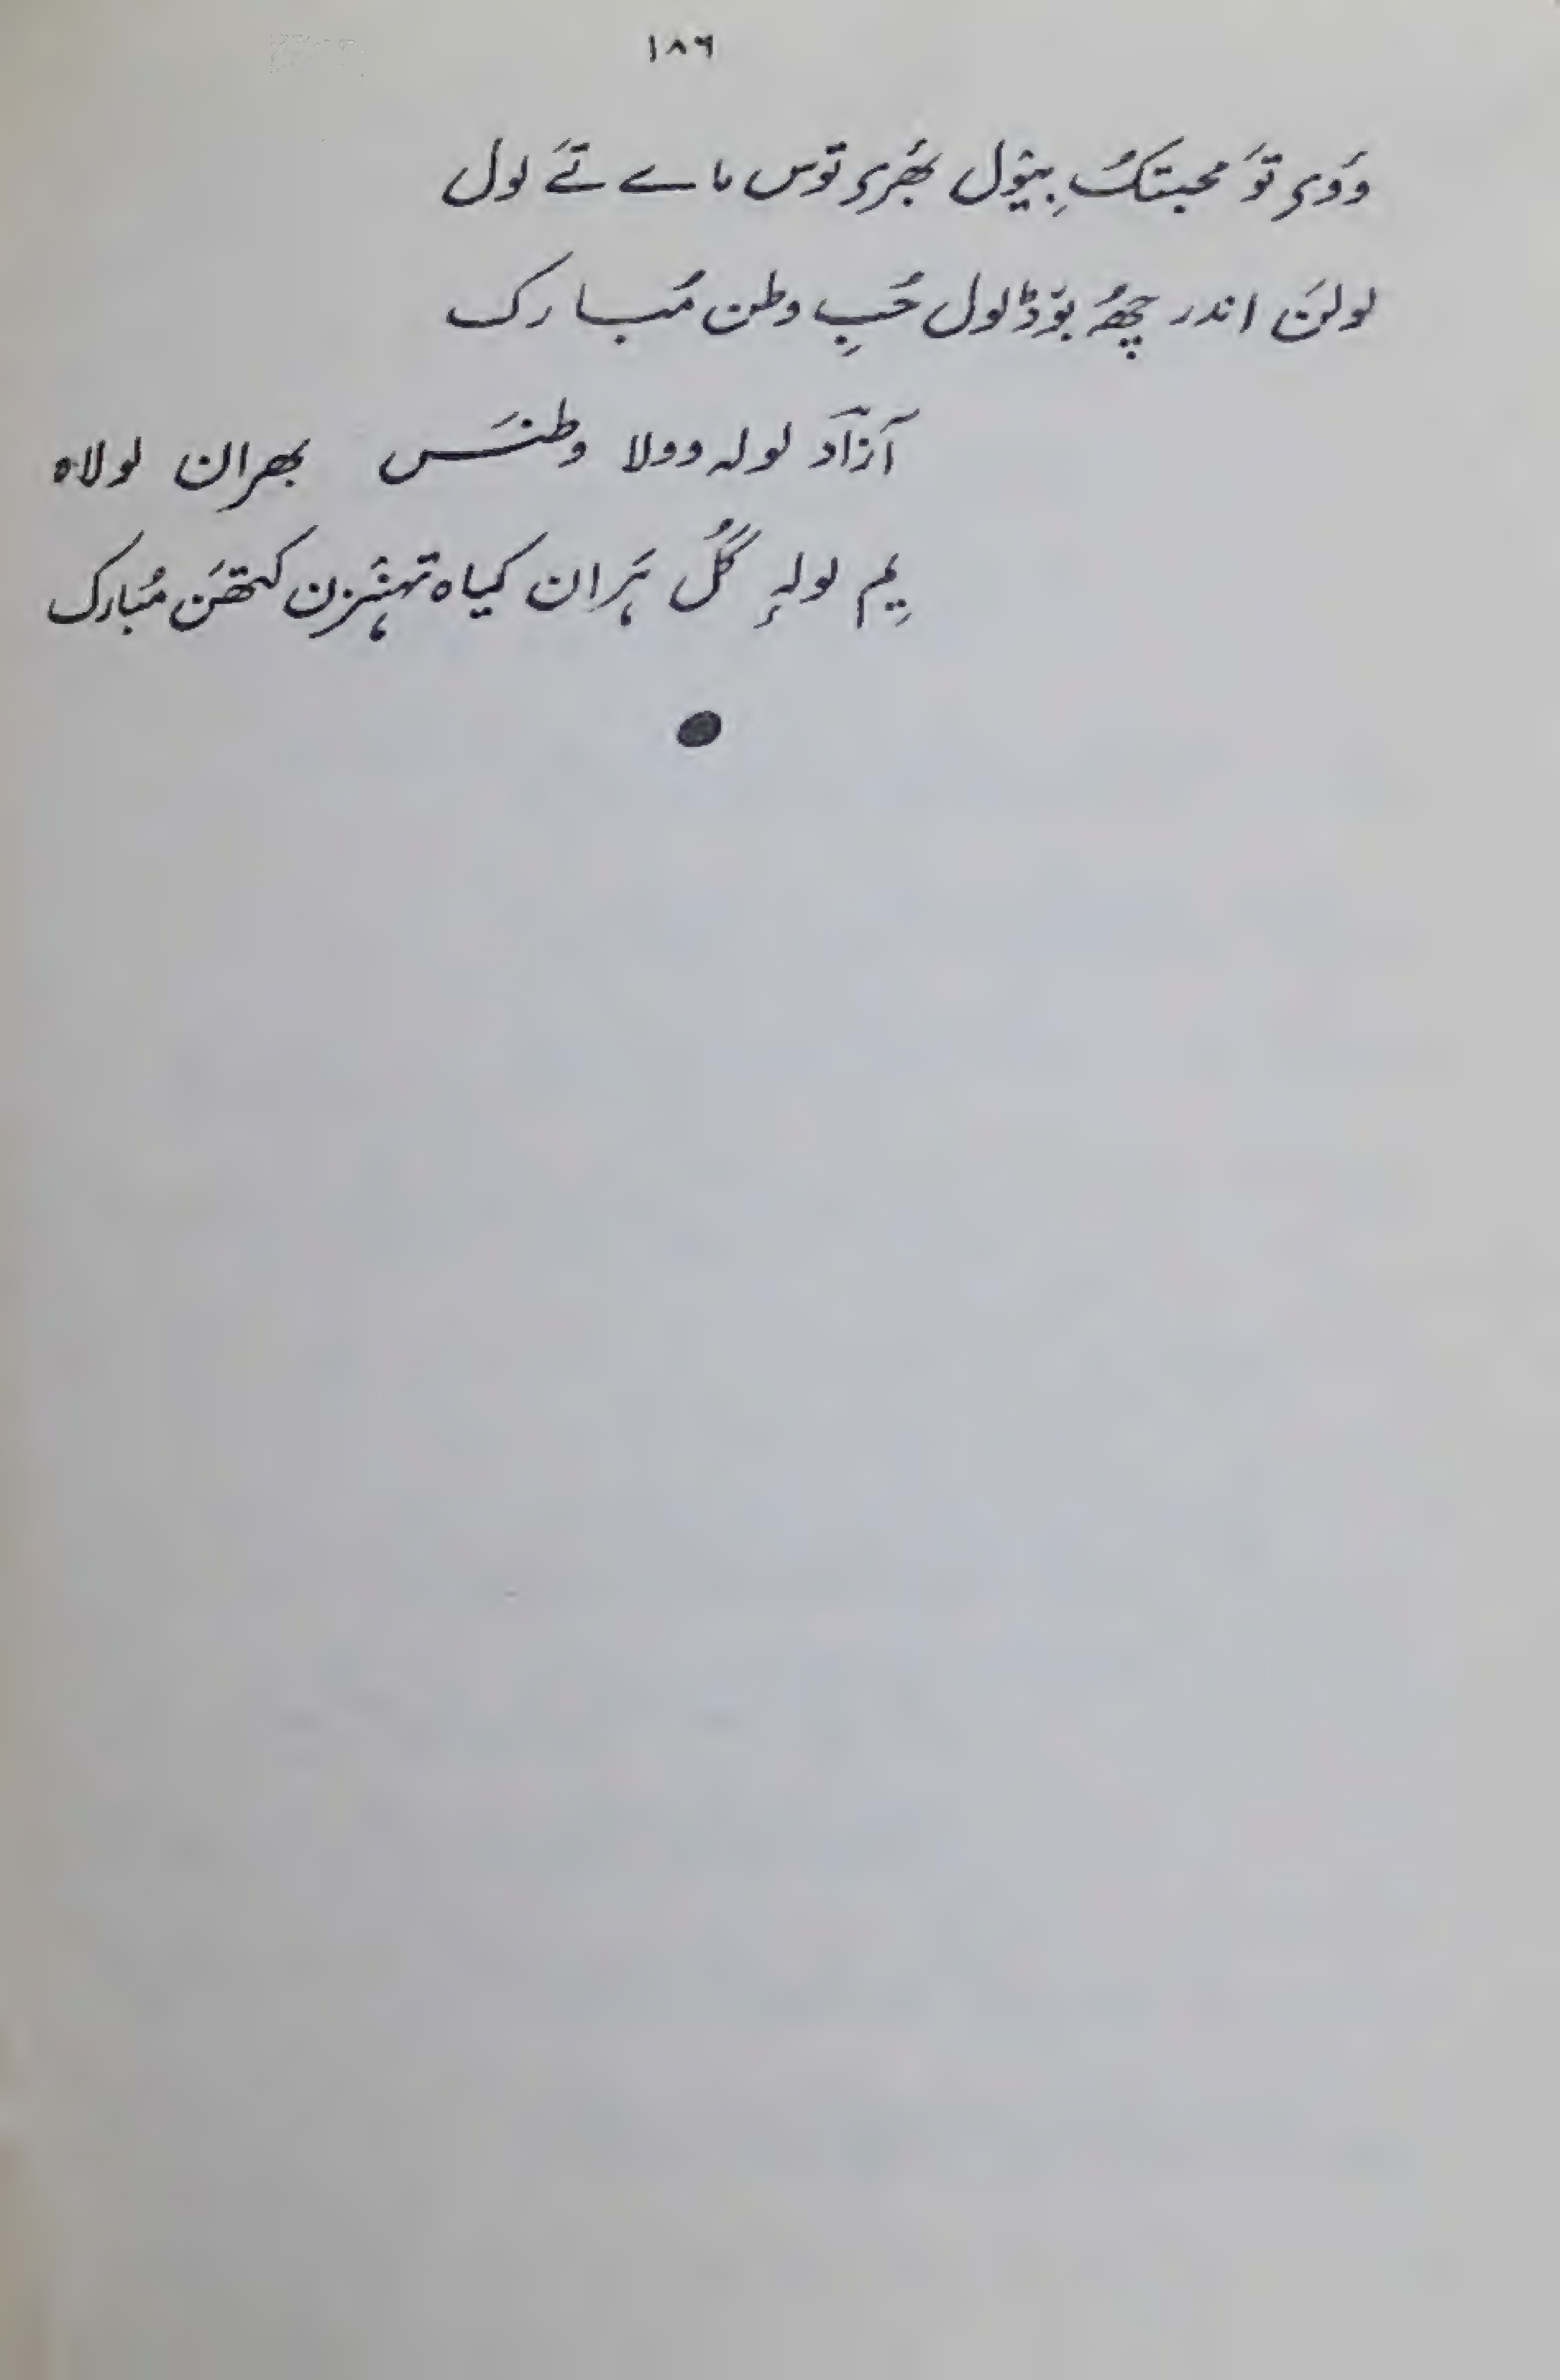 ١٨٦
وَوِی تَو محبتُک بِیول بَھرِی توس ماے تَے لول
لولَن اندر چھُہ بوٚڈ لول حُبِ وطن مُبارک
آزاد لولہ وولا وطنَس بھران لولاہ
یِم لولہٕ گُل ہَران کیاہ تہنٛزن کتھَن مُبارک